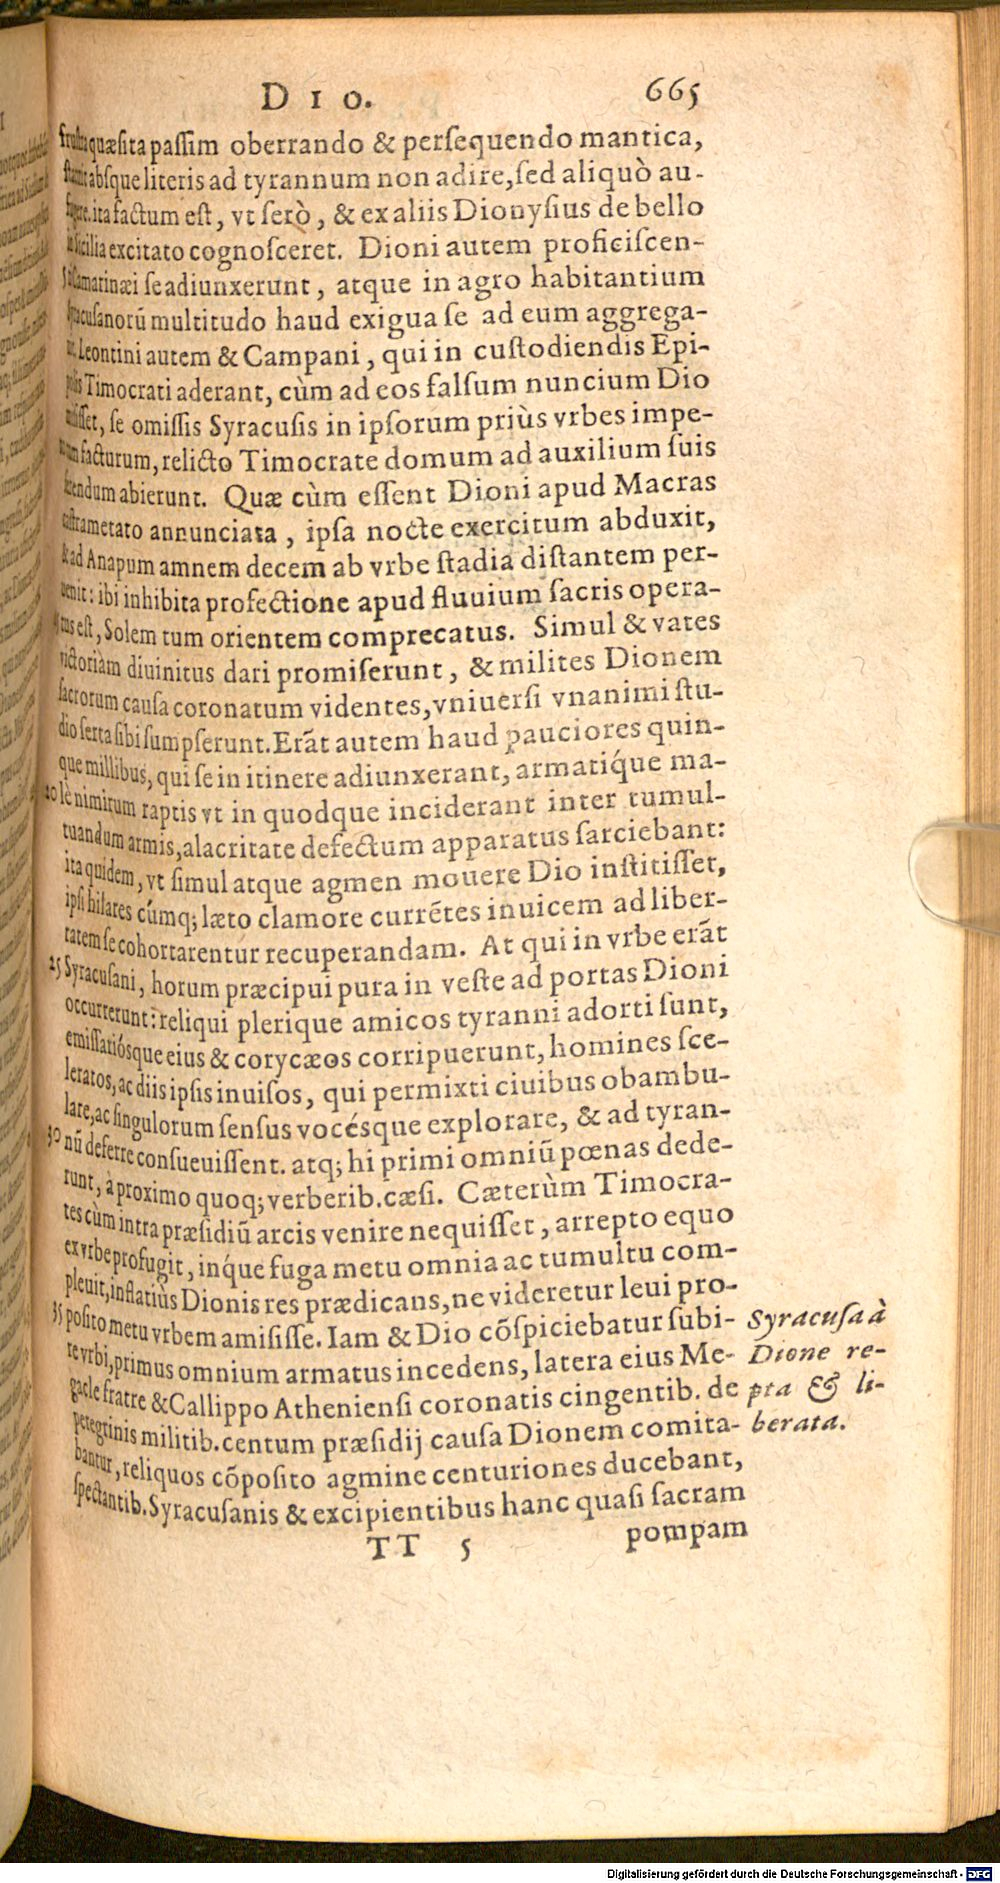 DIO. 665
frustra quæsita passim oberrando & persequendo mantica,
statuit absque literis ad tyrannum non adire, sed aliquò au-
fugere. ita factum est, vt serò, & ex aliis Dionysius de bello
in Sicilia excitato cognosceret. Dioni autem proficiscen-
5 ti Camarinæi se adiunxerunt, atque in agro habitantium
Syracusanorū multitudo haud exigua se ad eum aggrega-
uit. Leontini autem & Campani, qui in custodiendis Epi-
polis Timocrati aderant, cùm ad eos falsum nuncium Dio
misisset, se omissis Syracusis in ipsorum priùs vrbes impe-
tum facturum, relicto Timocrate domum ad auxilium suis
ferendum abierunt. Quæ cùm essent Dioni apud Macras
castrametato annunciata, ipsa nocte exercitum abduxit,
& ad Anapum amnem decem ab vrbe stadia distantem per-
uenit: ibi inhibita profectione apud fluuium sacris opera-
tus est, Solem tum orientem comprecatus. Simul & vates
victoriam diuinitus dari promiserunt, & milites Dionem
sacrorum causa coronatum videntes, vniuersi vnanimi stu-
dio serta sibi sumpserunt. Erāt autem haud pauciores quin-
que millibus, qui se in itinere adiunxerant, armatíque ma-
20 lè nimirum raptis vt in quodque inciderant inter tumul-
tuandum armis, alacritate defectum apparatus sarciebant:
ita quidem, vt simul atque agmen mouere Dio institisset,
ipsi hilares cúmq; læto clamore currētes inuicem ad liber-
tatem se cohortarentur recuperandam. At qui in vrbe erāt
25 Syracusani, horum præcipui pura in veste ad portas Dioni
occurrerunt: reliqui plerique amicos tyranni adorti sunt,
emissariósque eius & corycæos corripuerunt, homines sce-
leratos, ac diis ipsis inuisos, qui permixti ciuibus obambu-
lare, ac singulorum sensus vocésque explorare, & ad tyran-
30 nū deferre consueuissent. atq; hi primi omniū pœnas dede-
runt, à proximo quoq; verberib. cæsi. Cæterùm Timocra-
tes cùm intra præsidiū arcis venire nequisset, arrepto equo
ex vrbe profugit, inque fuga metu omnia ac tumultu com-
pleuit, inflatiùs Dionis res prædicans, ne videretur leui pro-
35 posito metu vrbem amisisse. Iam & Dio cōspiciebatur subi-
re vrbi, primus omnium armatus incedens, latera eius Me-
gacle fratre & Callippo Atheniensi coronatis cingentib. de
peregrinis militib. centum præsidij causa Dionem comita-
bantur, reliquos cōposito agmine centuriones ducebant,
spectantib. Syracusanis & excipientibus hanc quasi sacram
TT 5 pompam
Syracusa à
Dione re-
pta & li-
berata.
Digitalisierung gefördert durch die Deutsche Forschungsgemeinschaft - DFG